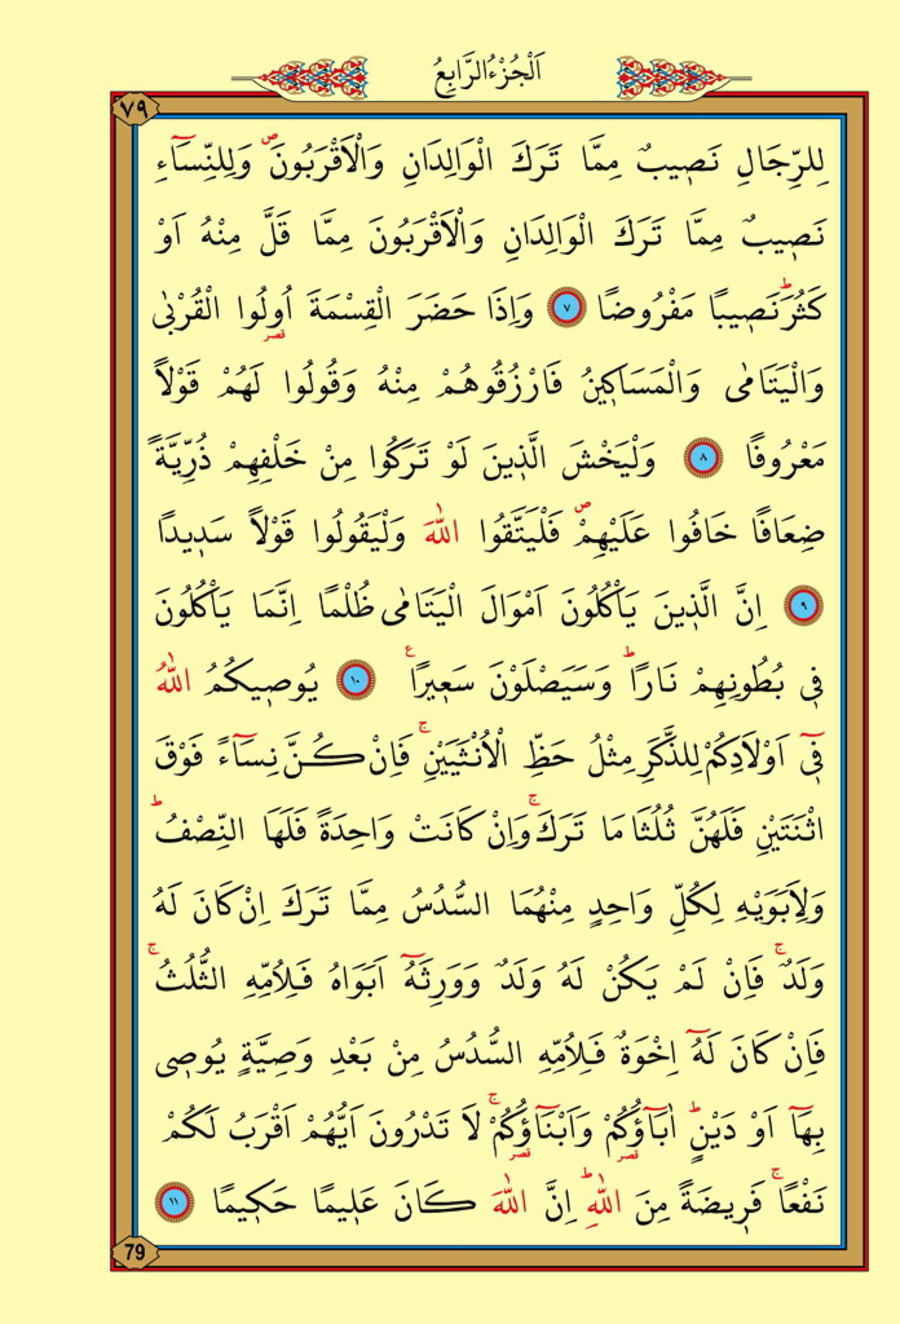 اَلْجُزْءُ الرَّابِعُ
٧٩
لِلرِّجَالِ نَصٖيبٌ مِمَّا تَرَكَ الْوَالِدَانِ وَالْاَقْرَبُونَࣕ وَلِلنِّسَٓاءِ
نَصٖيبٌ مِمَّا تَرَكَ الْوَالِدَانِ وَالْاَقْرَبُونَ مِمَّا قَلَّ مِنْهُ اَوْ
كَثُرَؕ نَصٖيبًا مَفْرُوضًا ٧ وَاِذَا حَضَرَ الْقِسْمَةَ اُو۬لُوا الْقُرْبٰى
قصر
وَالْيَتَامٰى وَالْمَسَاكٖينُ فَارْزُقُوهُمْ مِنْهُ وَقُولُوا لَهُمْ قَوْلًا
مَعْرُوفًا ٨ وَلْيَخْشَ الَّذٖينَ لَوْ تَرَكُوا مِنْ خَلْفِهِمْ ذُرِّيَّةً
ضِعَافًا خَافُوا عَلَيْهِمْࣕ فَلْيَتَّقُوا اللّٰهَ وَلْيَقُولُوا قَوْلًا سَدٖيدًا
٩ اِنَّ الَّذٖينَ يَأْكُلُونَ اَمْوَالَ الْيَتَامٰى ظُلْمًا اِنَّمَا يَأْكُلُونَ
فٖى بُطُونِهِمْ نَارًاؕ وَسَيَصْلَوْنَ سَعٖيرًاࣖ ١٠ يُوصٖيكُمُ اللّٰهُ
فٖٓى اَوْلَادِكُمْ لِلذَّكَرِ مِثْلُ حَظِّ الْاُنْثَيَيْنِۚ فَاِنْ كُنَّ نِسَٓاءً فَوْقَ
اثْنَتَيْنِ فَلَهُنَّ ثُلُثَا مَا تَرَكَۚ وَاِنْ كَانَتْ وَاحِدَةً فَلَهَا النِّصْفُؕ
وَلِاَبَوَيْهِ لِكُلِّ وَاحِدٍ مِنْهُمَا السُّدُسُ مِمَّا تَرَكَ اِنْ كَانَ لَهُ
وَلَدٌۚ فَاِنْ لَمْ يَكُنْ لَهُ وَلَدٌ وَوَرِثَهُٓ اَبَوَاهُ فَلِاُمِّهِ الثُّلُثُۚ
فَاِنْ كَانَ لَهُٓ اِخْوَةٌ فَلِاُمِّهِ السُّدُسُ مِنْ بَعْدِ وَصِيَّةٍ يُوصٖى
بِهَٓا اَوْ دَيْنٍؕ اٰبَٓاؤُ۬كُمْ وَاَبْنَٓاؤُ۬كُمْۚ لَا تَدْرُونَ اَيُّهُمْ اَقْرَبُ لَكُمْ
قصر قصر
نَفْعًاۚ فَرٖيضَةً مِنَ اللّٰهِؕ اِنَّ اللّٰهَ كَانَ عَلٖيمًا حَكٖيمًا ١١
79